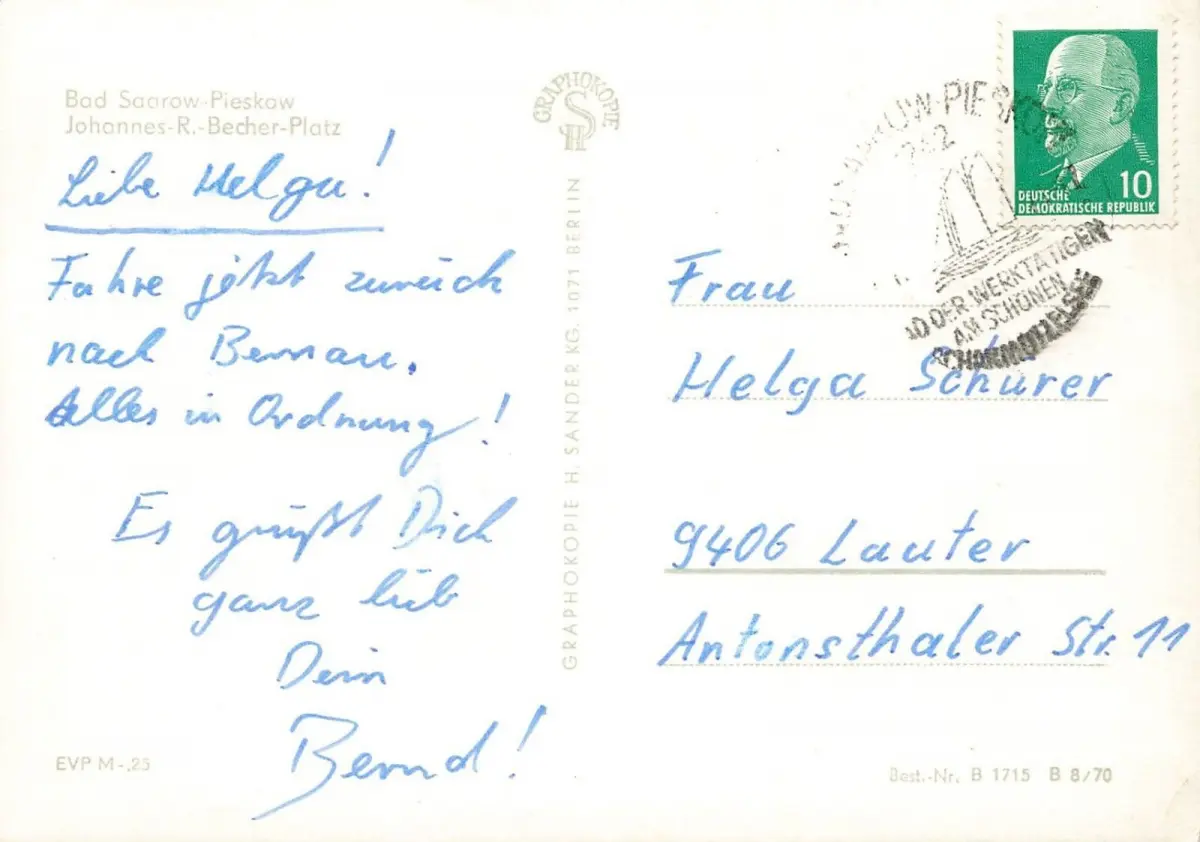 Bad Saarow-Pieskow
Johannes-R.-Becher-Platz
Liebe Helga!
Fahre jetzt zurück
nach Bernau.
Alles in Ordnung!
Es grüßt Dich
ganz lieb
Dein
Bernd!
EVP M -,25
GRAPHOKOPIE
GRAPHOKOPIE H. SANDER KG. 1071 BERLIN
10
DEUTSCHE
DEMOKRATISCHE REPUBLIK
PIESKOW
DER WERKTÄTIGEN
AM SCHÖNEN
Frau
Helga Schürer
9406 Lauter
Antonsthaler Str. 11
Best.-Nr. B 1715 B 8/70